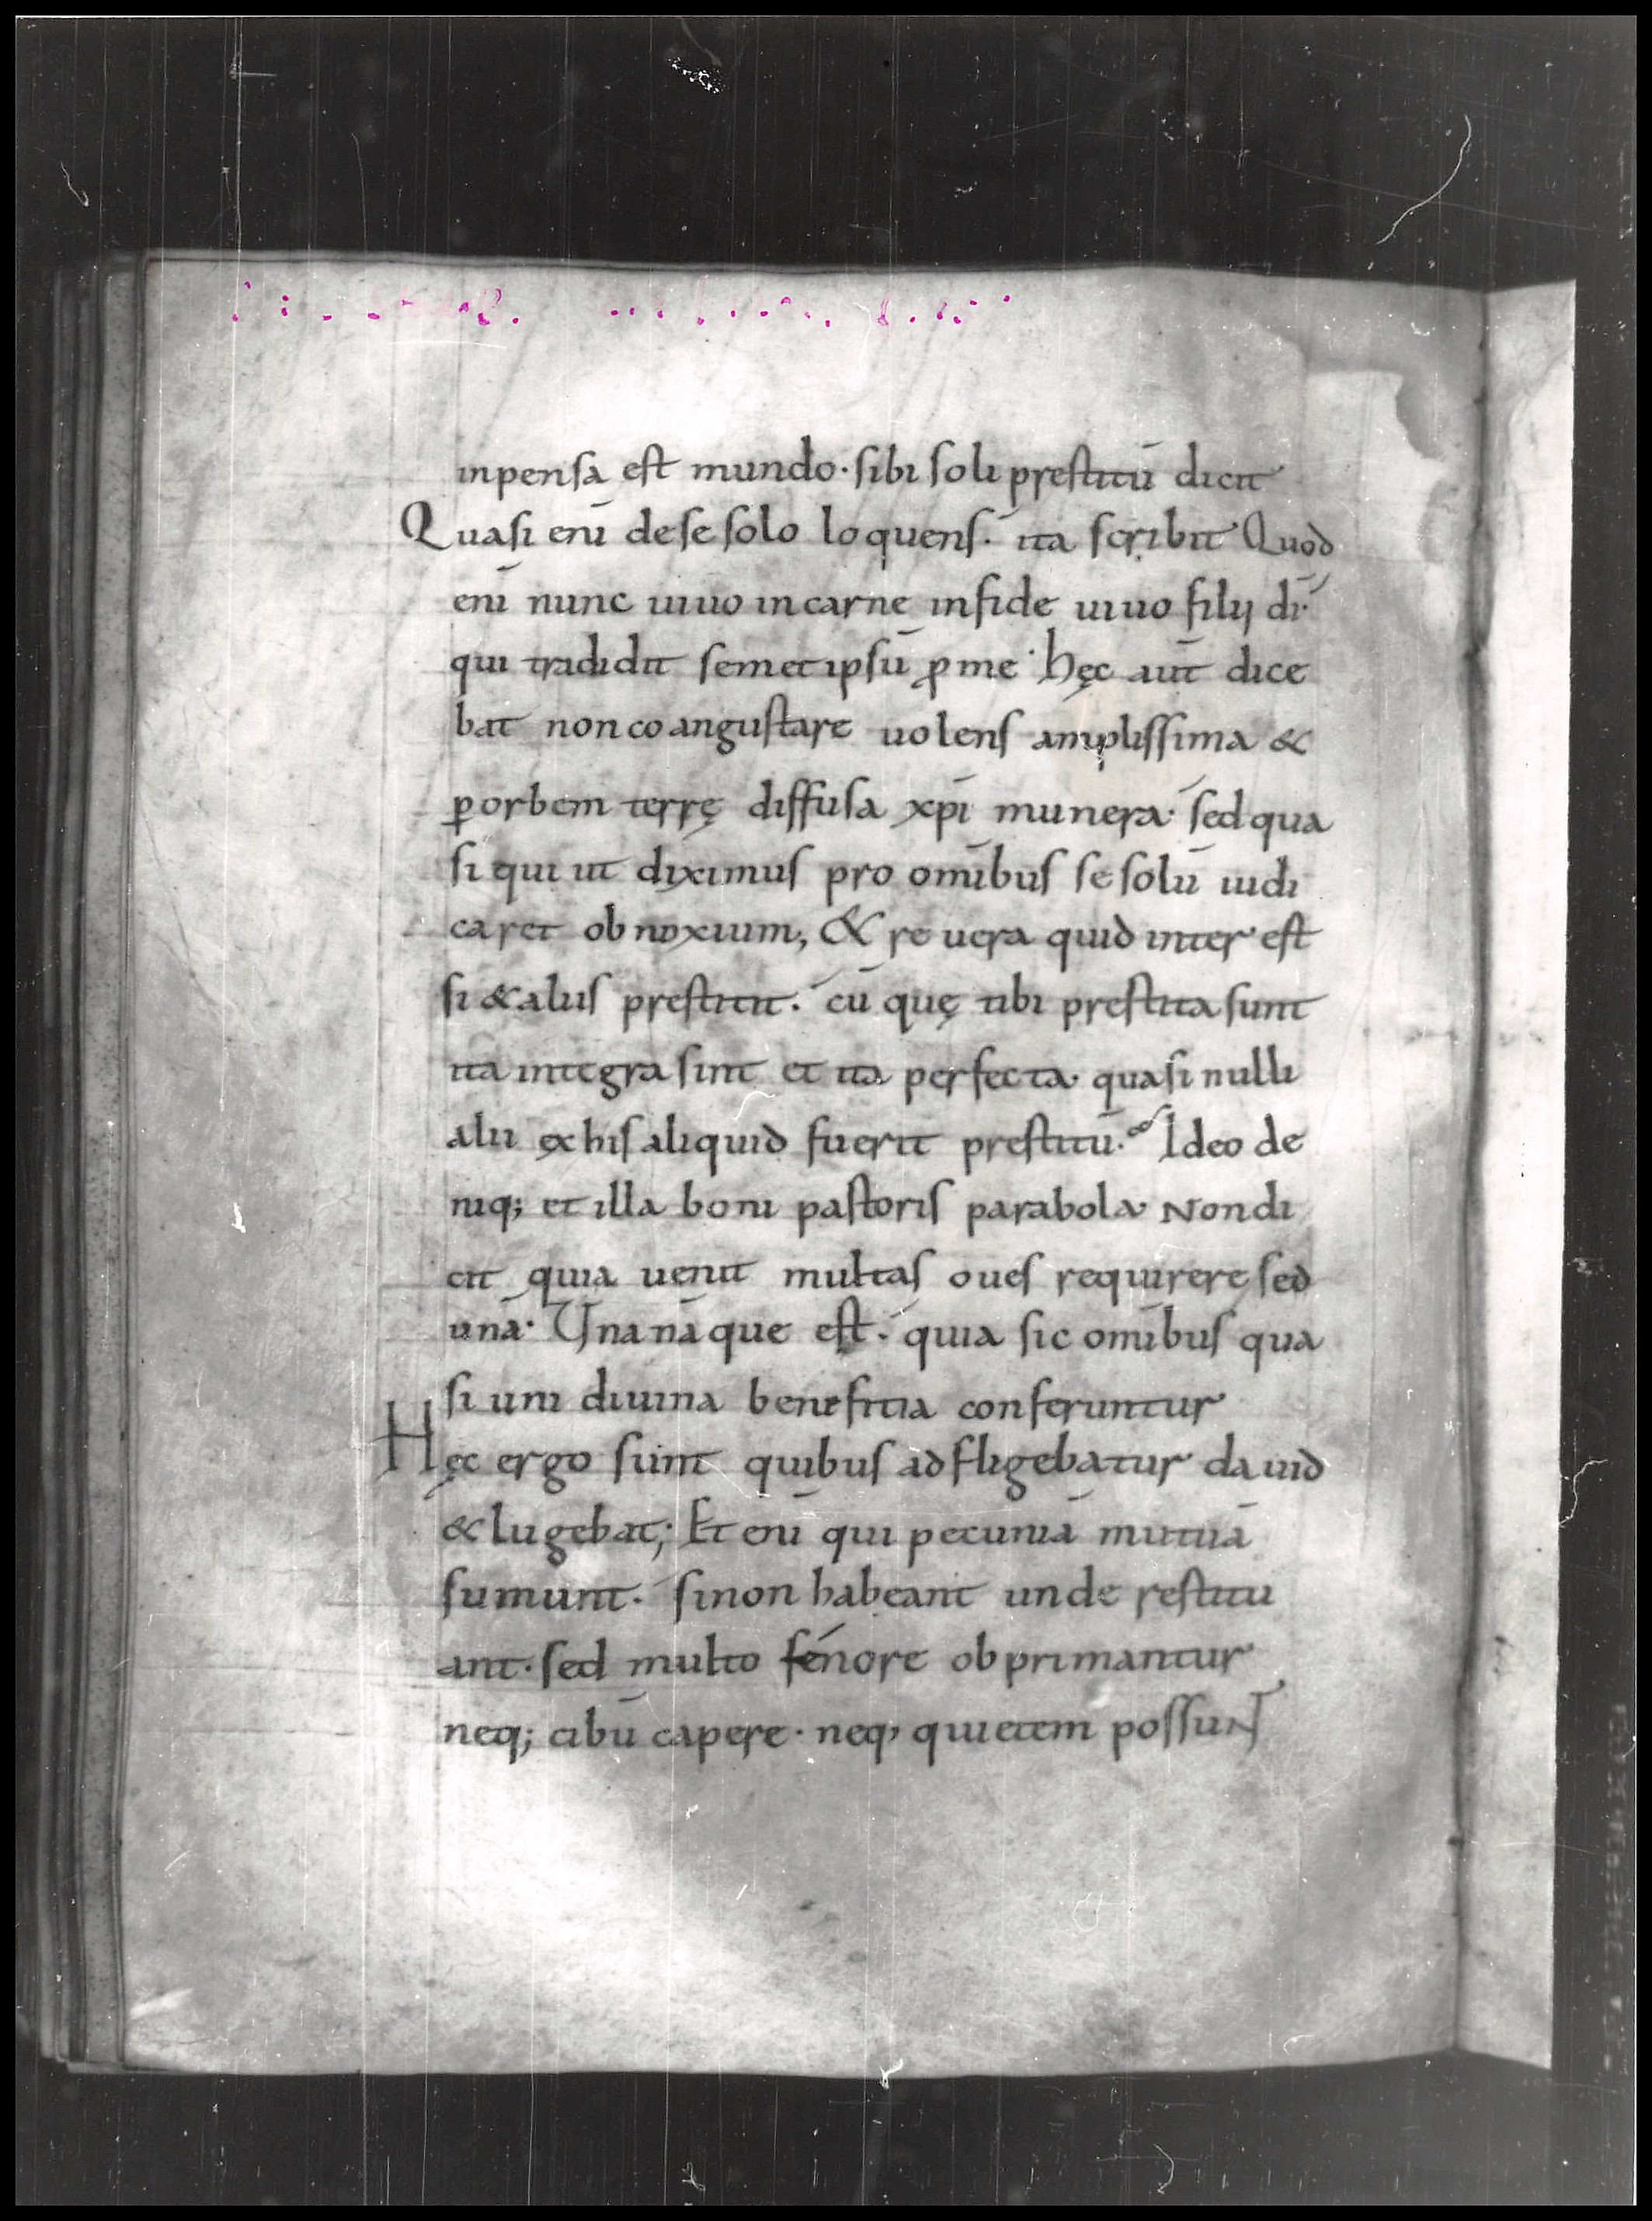 inpensa est mundo · sibi soli prestitū dicit
Quasi enī de se solo loquens · ita scribit Quod
enī nunc uiuo in carne in fide uiuo filij dī ·
qui tradidit semet ipsū ꝓ me · hęc aūt dice
bat non coangustare uolens amplissima &
ꝑ orbem terrę diffusa xp̄i munera · sed qua
si qui ut diximus pro om̄ibus se solū iudi
caret obnoxium, & re uera quid inter est
si & aliis prestitit · cū quę tibi prestita sunt
ita integra sint et ita perfecta · quasi nulli
alii ex his aliquid fuerit prestitū · Ideo de
niq; et illa boni pastoris parabola · Non di
cit quia uenit multas oues requirere sed
unā · Una nāque est · quia sic om̄ibus qua
si uni diuina benefitia conferuntur
Hęc ergo sunt quibus adfligebatur dauid
& lugebat; Et enī qui pecuniā mutuā
sumunt · si non habeant unde restitu
ant · sed multo fénore obprimantur
neq; cibū capere · neq; quietem possunt